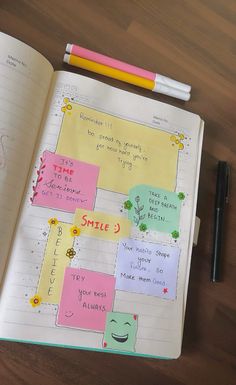 Memo No.
Date
Reminder!!!
be proud of yourself
for how hard you're
trying
IT'S
TIME
TO BE
Serious
GET IS DONE!
TAKE A
DEEP BREATH
AND
BEGIN..
SMILE :)
BELIEVE
Your Habits Shape
your
future, So
Make them Good
TRY
Your BEST
ALWAYS